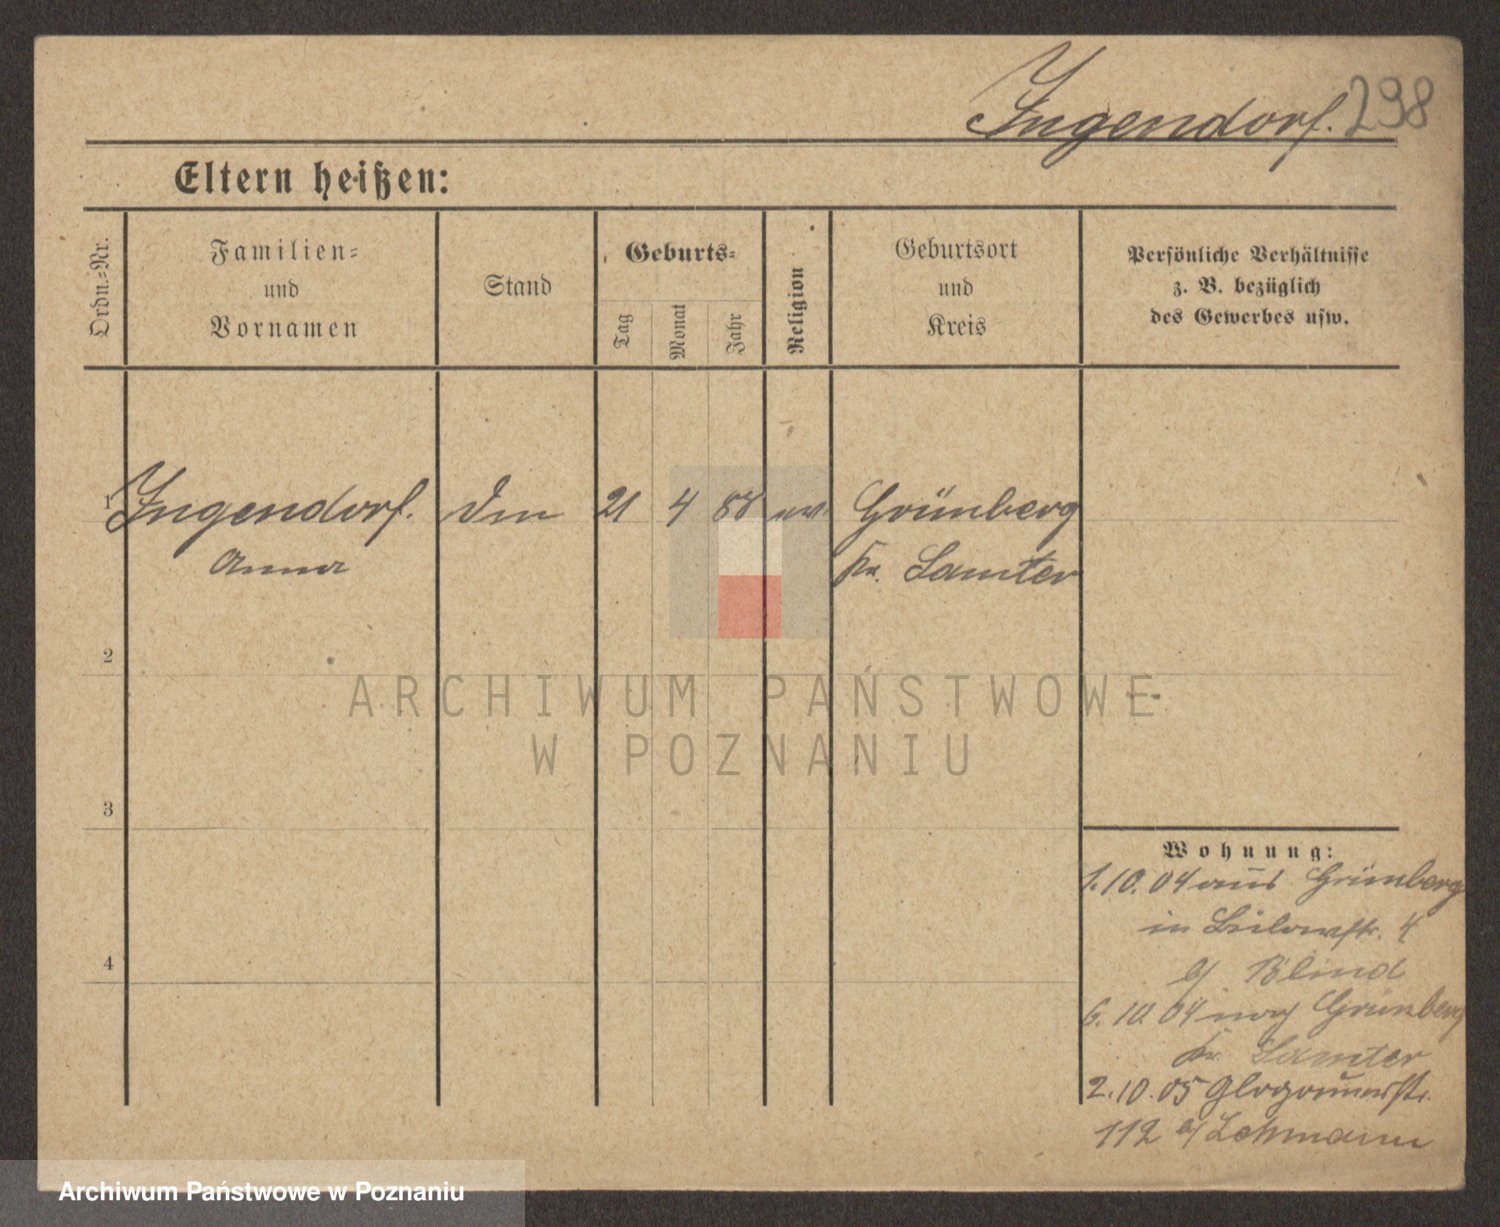 Ingendorf. 298
Eltern heißen:
Ordn.-Nr.
Familien-
und
Vornamen
Stand
Geburts-
Tag
Monat
Jahr
Religion
Geburtsort
und
Kreis
Persönliche Verhältnisse
z. B. bezüglich
des Gewerbes usw.
1 Ingendorf. 21 4 88 ev. Grünberg
Anna Kr. Samter
2
3
4
Wohnung:
1.10.04 aus Grünberg
in Bülowstr. 4
b/ Blind
6.10.04 nach Grünberg
Kr. Samter
2.10.05 Glogauerstr.
112 b/ Lehmann
ARCHIWUM PAŃSTWOWE
W POZNANIU
Archiwum Państwowe w Poznaniu